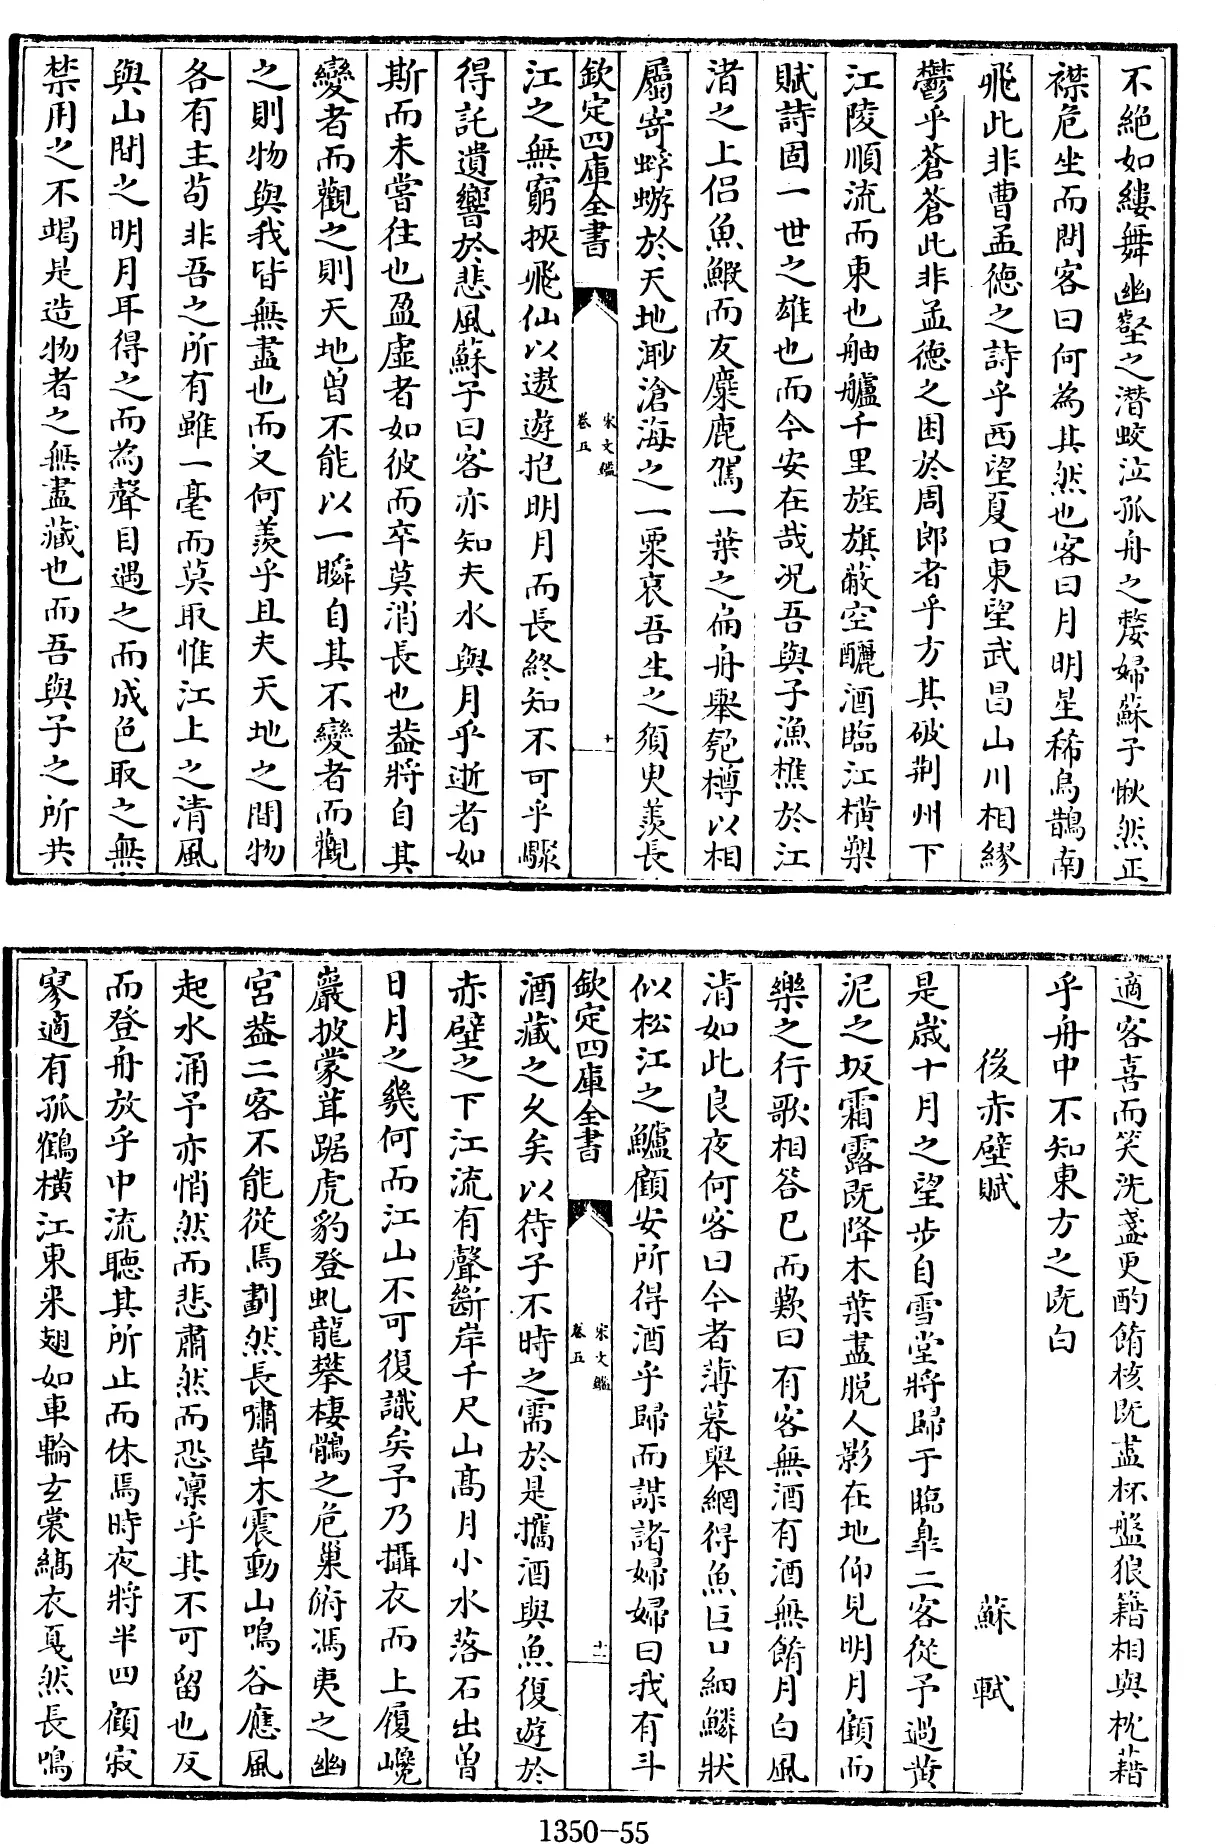 不絶如縷舞幽壑之潜蛟泣孤舟之嫠婦蘇子愀然正
襟危坐而問客曰何為其然也客曰月明星稀烏鵲南
飛此非曹孟徳之詩乎西望夏口東望武昌山川相繆
鬱乎蒼蒼此非孟徳之困於周郎者乎方其破荆州下
江陵順流而東也舳艫千里旌旗蔽空釃酒臨江横槊
賦詩固一世之雄也而今安在哉况吾與子漁樵於江
渚之上侣魚鰕而友麋鹿駕一葉之扁舟舉匏樽以相
屬寄蜉蝣於天地渺滄海之一粟哀吾生之須臾羨長
欽定四庫全書
宋文鑑
卷五
十
江之無窮挾飛仙以遨遊抱明月而長終知不可乎驟
得託遺響於悲風蘇子曰客亦知夫水與月乎逝者如
斯而未嘗往也盈虚者如彼而卒莫消長也葢將自其
變者而觀之則天地曾不能以一瞬自其不變者而觀
之則物與我皆無盡也而又何羨乎且夫天地之間物
各有主茍非吾之所有雖一毫而莫取惟江上之清風
與山間之明月耳得之而為聲目遇之而成色取之無
禁用之不竭是造物者之無盡藏也而吾與子之所共
適客喜而笑洗盞更酌餚核既盡杯盤狼籍相與枕藉
乎舟中不知東方之既白
後赤壁賦 蘇軾
是歳十月之望步自雪堂將歸于臨臯二客從予過黄
泥之坂霜露既降木葉盡脱人影在地仰見明月顧而
樂之行歌相答已而歎曰有客無酒有酒無餚月白風
清如此良夜何客曰今者薄暮舉網得魚巨口細鱗狀
似松江之鱸顧安所得酒乎歸而謀諸婦婦曰我有斗
欽定四庫全書
宋文鑑
卷五
十一
酒藏之久矣以待子不時之需於是攜酒與魚復遊於
赤壁之下江流有聲斷岸千尺山髙月小水落石出曾
日月之幾何而江山不可復識矣予乃攝衣而上履巉
巖披蒙茸踞虎豹登虬龍攀棲鶻之危巢俯馮夷之幽
宫葢二客不能從焉劃然長嘯草木震動山鳴谷應風
起水涌予亦悄然而悲肅然而恐凛乎其不可留也反
而登舟放乎中流聽其所止而休焉時夜將半四顧寂
寥適有孤鶴横江東来翅如車輪玄裳縞衣戛然長鳴
1350-55